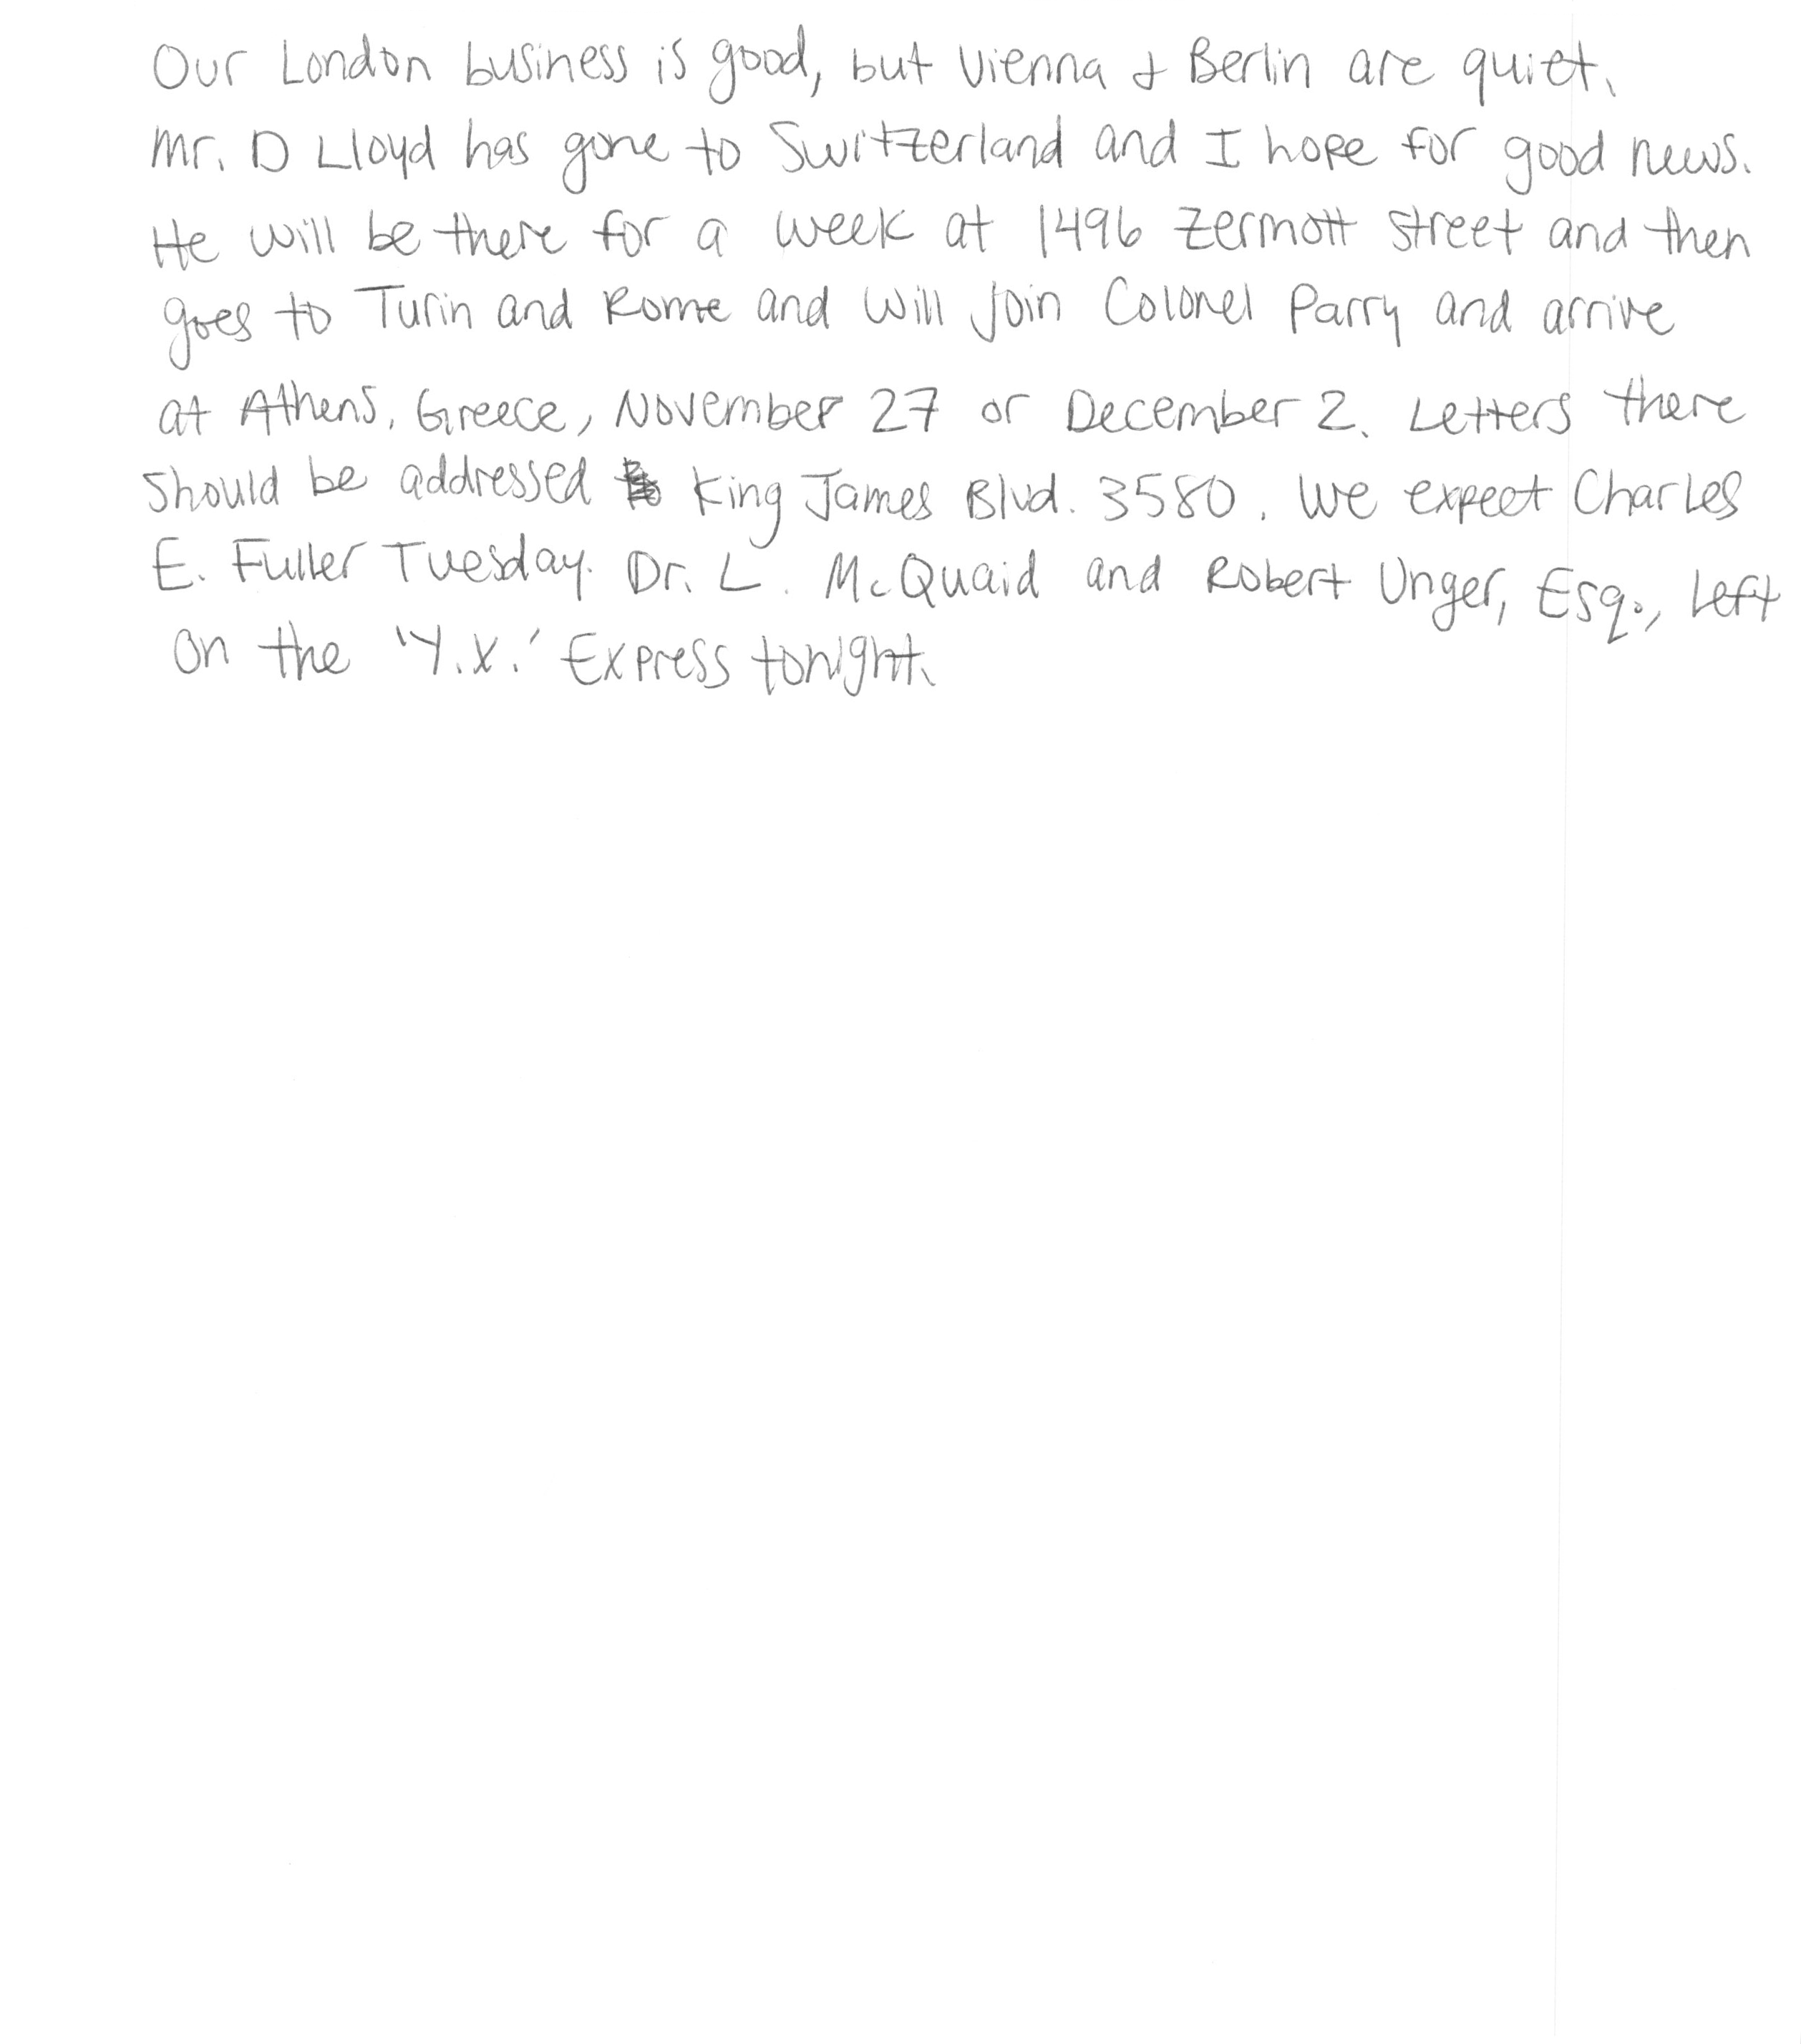 Our London business is good, but Vienna & Berlin are quiet.
Mr. D Lloyd has gone to Switzerland and I hope for good news.
He will be there for a week at 1496 Zermott street and then
goes to Turin and Rome and will join Colonel Parry and arrive
at Athens, Greece, November 27 or December 2. Letters there
should be addressed King James Blvd. 3580. We expect Charles
E. Fuller Tuesday. Dr. L. McQuaid and Robert Unger, Esq., left
on the 'Y.X.' Express tonight.